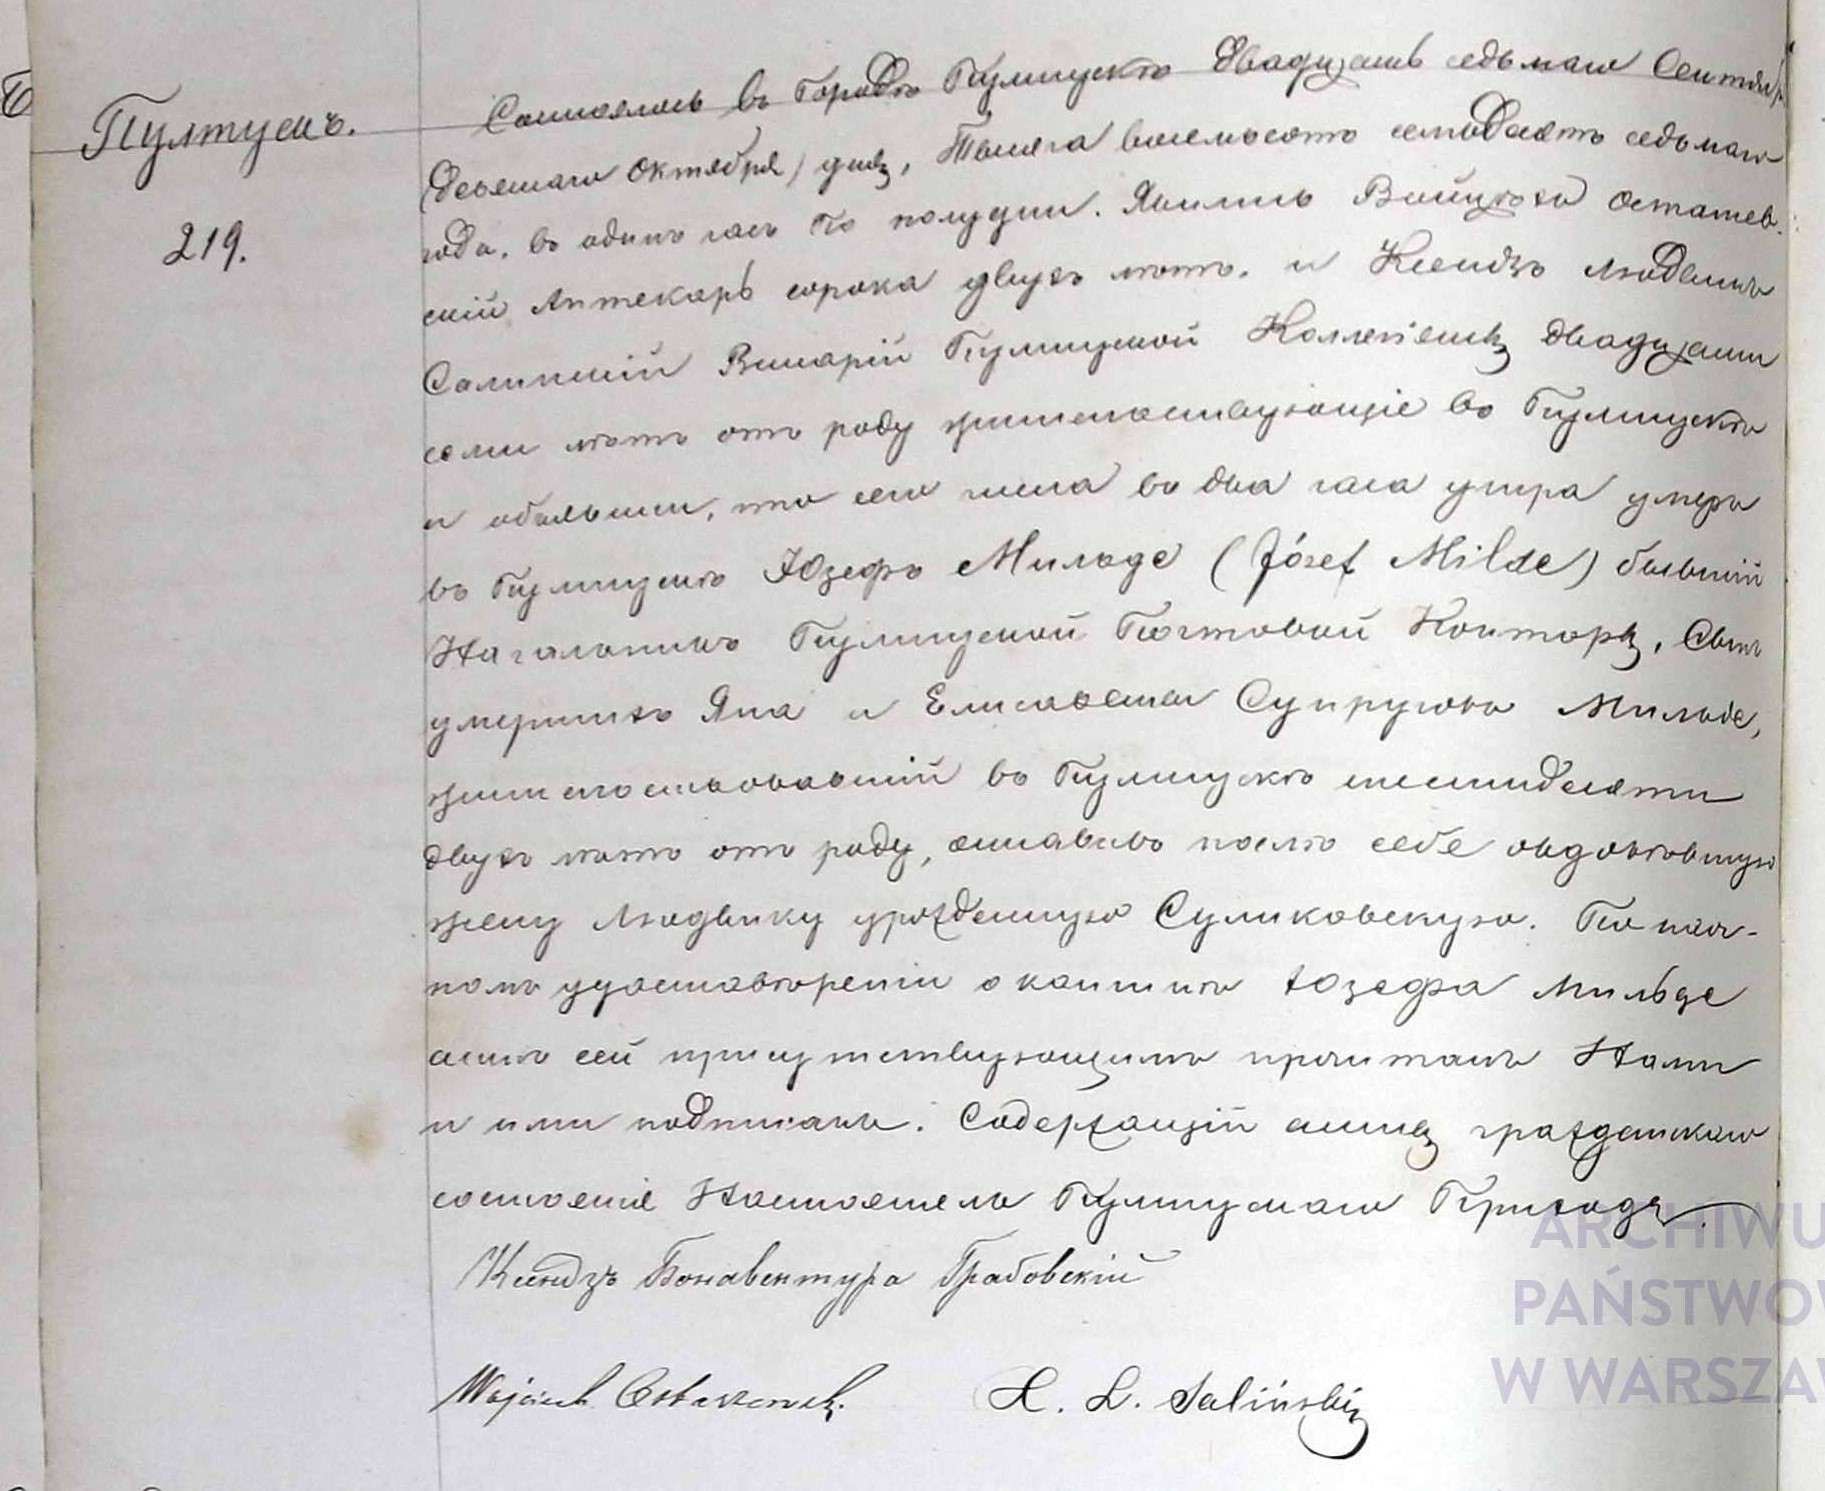 Пултускъ.
219.
Состоялось въ Городѣ Пултускѣ двадцать седьмаго Сентября
(девятаго Октября) дня, Тысяча восемьсотъ семьдесятъ седьмаго
года, въ одинъ часъ по полудни. Явились Войцѣхъ Осташев-
скій Аптекарь сорока двухъ лѣтъ, и Ксендзъ Людвикъ
Салинскій Викарій Пултуской Коллегіяты двадцати
семи лѣтъ отъ роду жительствующіе въ Пултускѣ
и объявили, что сего числа въ два часа утра умеръ
въ Пултускѣ Юзефъ Мильде (Józef Milde) бывшій
Начальникъ Пултуской Почтовой Конторы, Сынъ
умершихъ Яна и Елисаветы Супруговъ Мильде,
жительствовавшій въ Пултускѣ шестидесяти
двухъ лѣтъ отъ роду, оставивъ послѣ себе овдовѣвшую
жену Людвику урожденную Суликовскую. По наоч-
номъ удостовѣреніи о кончинѣ Юзефа Мильде
актъ сей присутствующимъ прочитанъ Нами
и ими подписанъ. Содержащій акты гражданскаго
состоянія Настоятель Пултускаго Прихода.
Ксендзъ Бонавентура Грабовскій
Wojciech Ostaszewski.
X. L. Saliński
ARCHIWU
PAŃSTWOW
W WARSZA